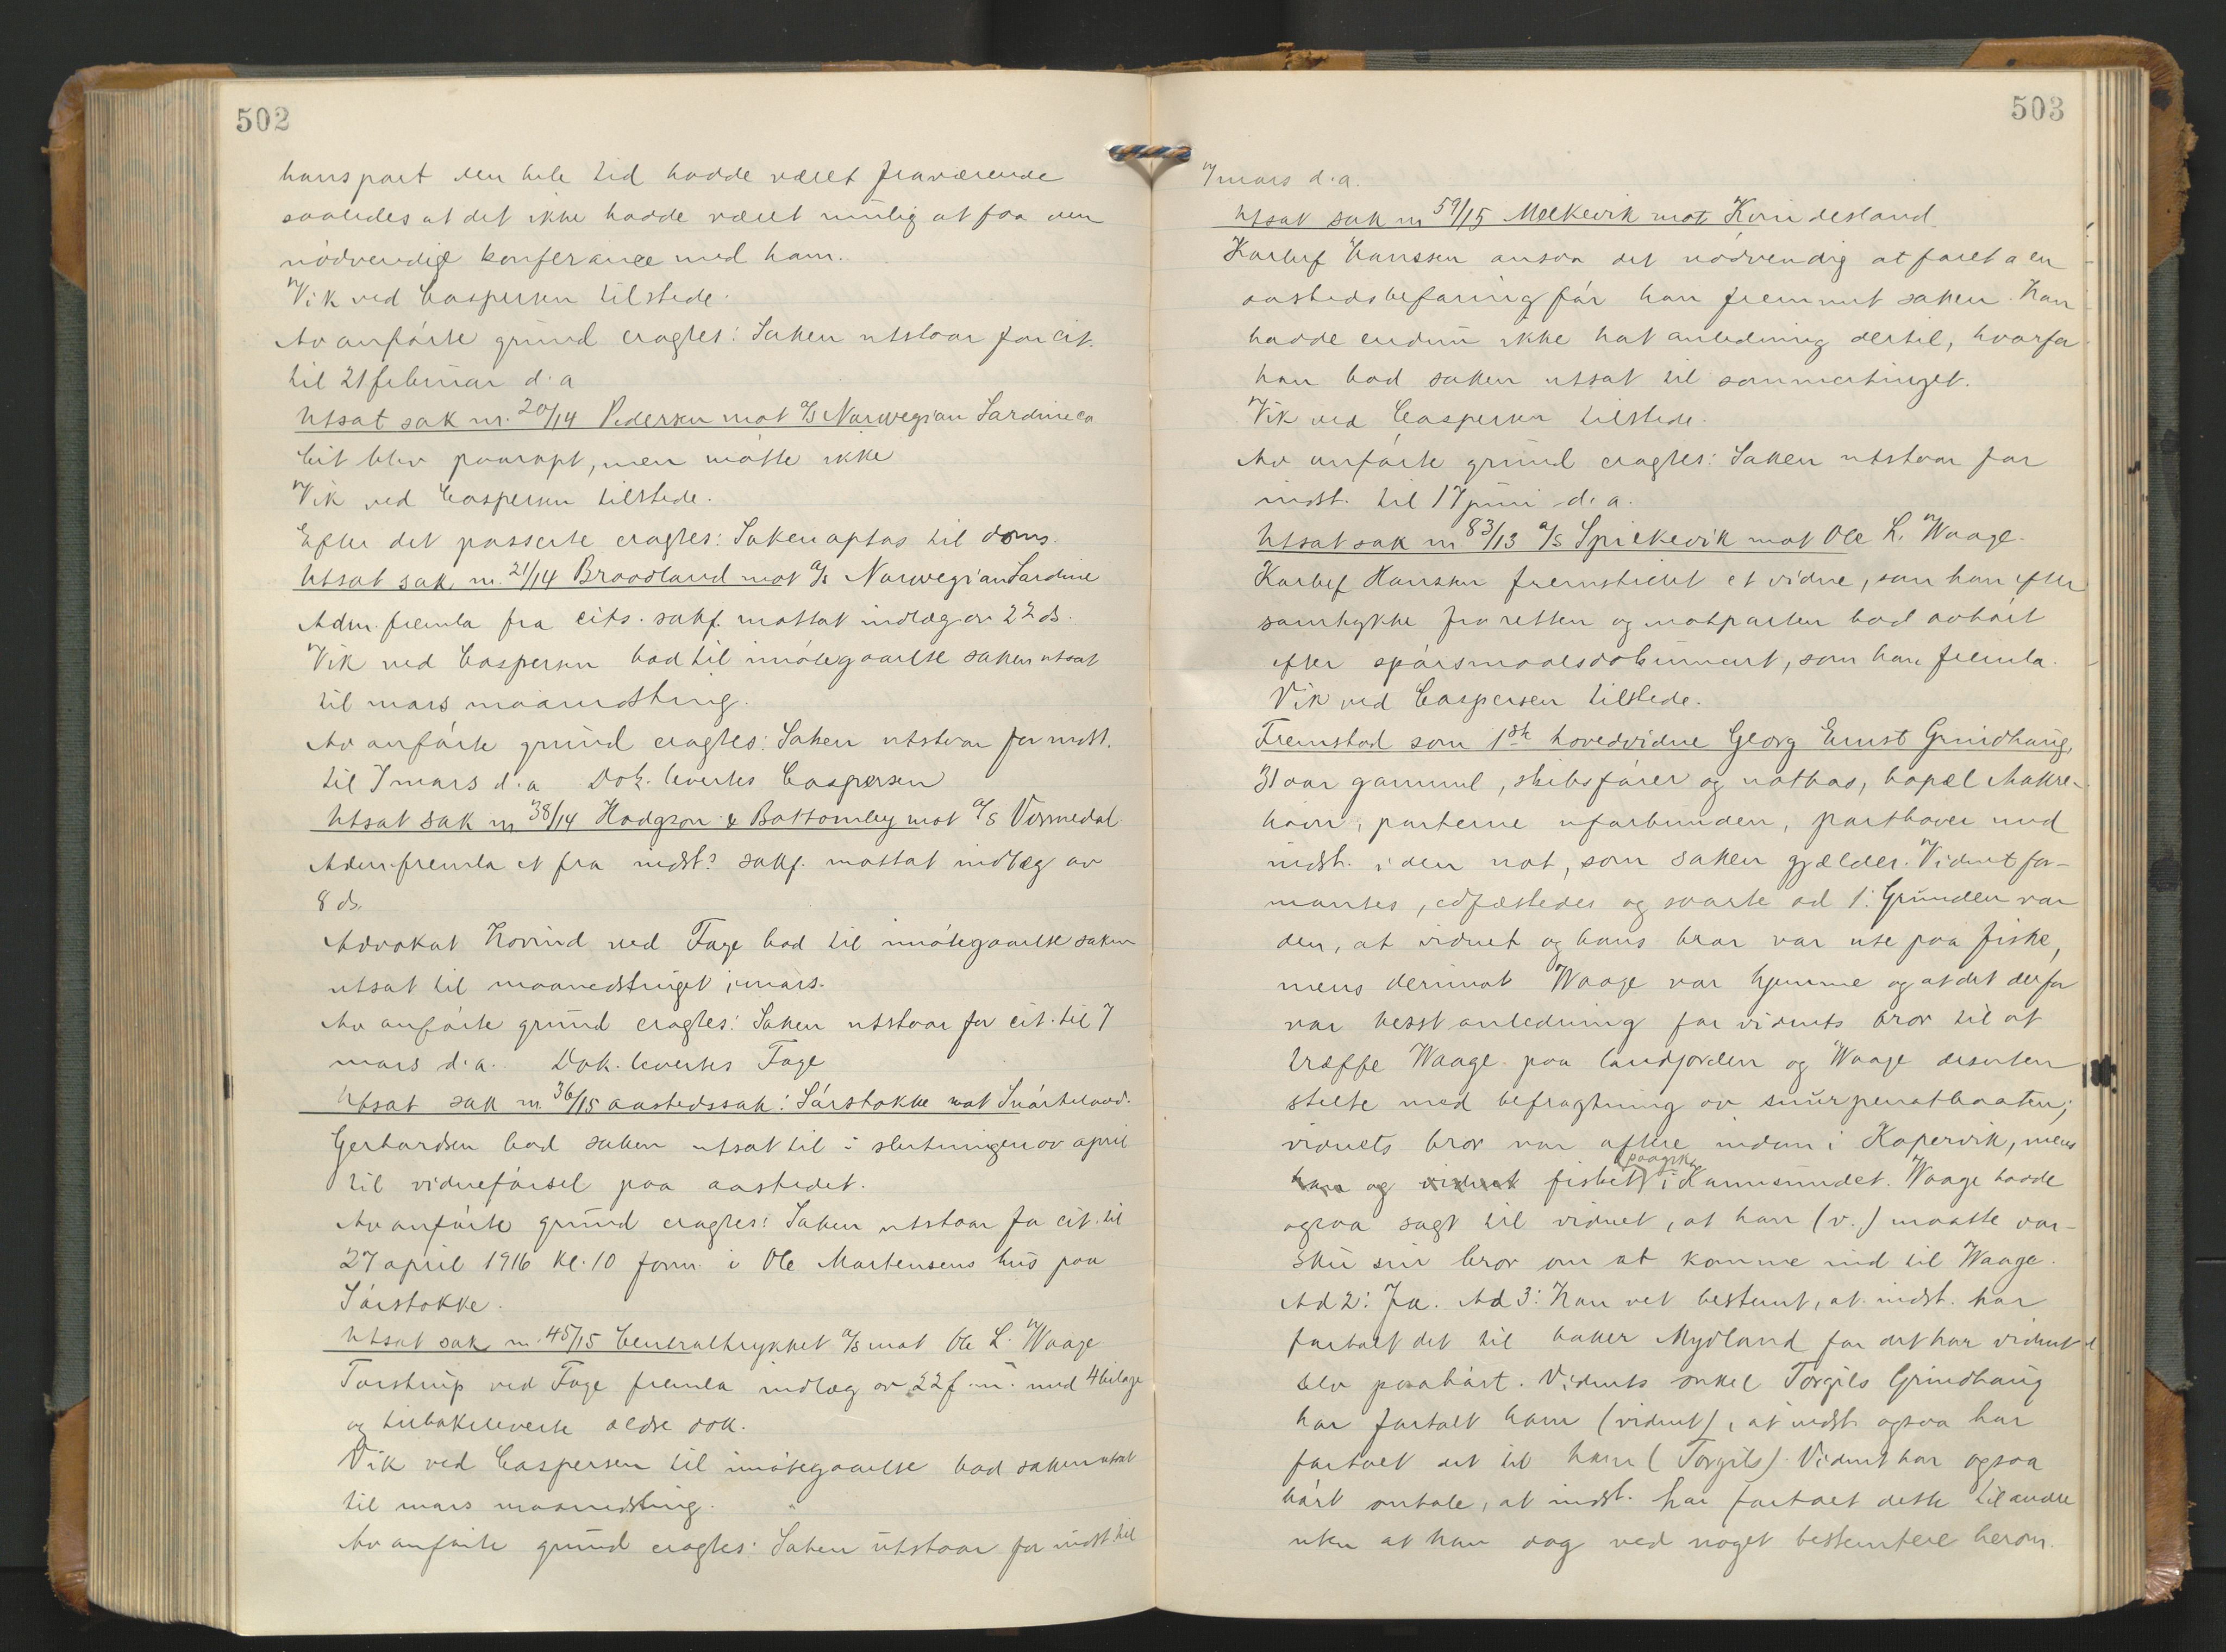 502
hans part den hele tid hadde været fraværende
saaledes at det ikke hadde været mulig at faa den
nødvendige konferance med ham.
Vik ved Caspersen tilstede.
Av anførte grund eragtes: Saken utstaar for cit.
til 21 februar d.a
Utsat sak nr. 20/14 Pedersen mot a/s Norwegian Sardine co
Cit blev paaropt, men møtte ikke
Vik ved Caspersen tilstede.
Efter det passerte eragtes: Saken optas til doms.
Utsat sak nr. 21/14 Braadland mot a/s Norwegian Sardine
Adm. fremla fra cits. sakf. mottat indlæg av 22 ds.
Vik ved Caspersen bad til imøtegaaelse saken utsat
til mars maanedsting.
Av anførte grund eragtes: Saken utstaar for indst.
til 7 mars d.a Dok. levertes Caspersen
Utsat sak nr 38/14 Hodgson & Bottomley mot a/s Vormedal
Adm. fremla et fra indst.s sakf. mottat indlæg av
8 ds.
Advokat Hovind ved Fage bad til imøtegaaelse saken
utsat til maanedstinget i mars.
Av anførte grund eragtes: Saken utstaar for cit. til 7
mars d.a. Dok. levertes Fage
Utsat sak nr. 36/15 aastedssak: Sørstokke mot Snørteland.
Gerhardsen bad saken utsat til i slutningen av april
til vidneførsel paa aastedet.
Av anførte grund eragtes: Saken utstaar for cit. til
27 april 1916 kl. 10 form. i Ole Martensens hus paa
Sørstokke.
Utsat sak nr. 45/15 Centraltrykket a/s mot Ole L. Waage
Torstrup ved Fage fremla indlæg av 22 f.m. med 4 bilage
og tilbakeleverte ældre dok.
Vik ved Caspersen til imøtegaaelse bad saken utsat
til mars maanedsting.
Av anførte grund eragtes: Saken utstaar for indst til
503
7 mars d.a.
Utsat sak nr 59/15 Melkevik mot Kvindesland.
Karluf Hanssen ansaa det nødvendig at foreta en
aastedsbefaring før han fremmet saken. Han
hadde endnu ikke hat anledning dertil, hvorfor
han bad saken utsat til sommertinget.
Vik ved Caspersen tilstede.
Av anførte grund eragtes: Saken utstaar for
indst. til 17 juni d.a.
Utsat sak nr 83/13 a/s Spillevik mot Ole L. Waage.
Karluf Hanssen fremstillet et vidne, som han efter
samtykke fra retten og motparten bad avhørt
efter spørsmaalsdokument, som han fremla.
Vik ved Caspersen tilstede.
Fremstod som 1ste hovedvidne Georg Ernst Grindhaug,
31 aar gammel, skibsfører og notbas, bopæl Aakre-
havn, parterne uforbunden, parthaver med
indst. i den not, som saken gjælder. Vidnet for-
mantes, edfæstedes og svarte ad 1: Grunden var
den, at vidnet og hans bror var ute paa fiske,
mens derimot Waage var hjemme og at det derfor
var besst anledning for vidnets bror til at
træffe Waage paa landjorden og Waage desuten
stelte med befragtning av snurpenotbaaten;
vidnets bror var oftere indom i Kopervik, mens
han og vidnet fisket paagik i Karmsundet. Waage hadde
ogsaa sagt til vidnet, at han (v.) maatte var-
sku sin bror om at komme ind til Waage.
Ad 2: Ja. Ad 3: Han vet bestemt, at indst. har
fortalt det til baker Mydland for det har vidnet
selv paahørt. Vidnets onkel Torgils Grindhaug
har fortalt ham (vidnet), at indst. ogsaa har
fortalt det til ham (Torgils). Vidnet har ogsaa
hørt omtale, at indst. har fortalt dette til andre
uten at han dog ved noget bestemtere herom.